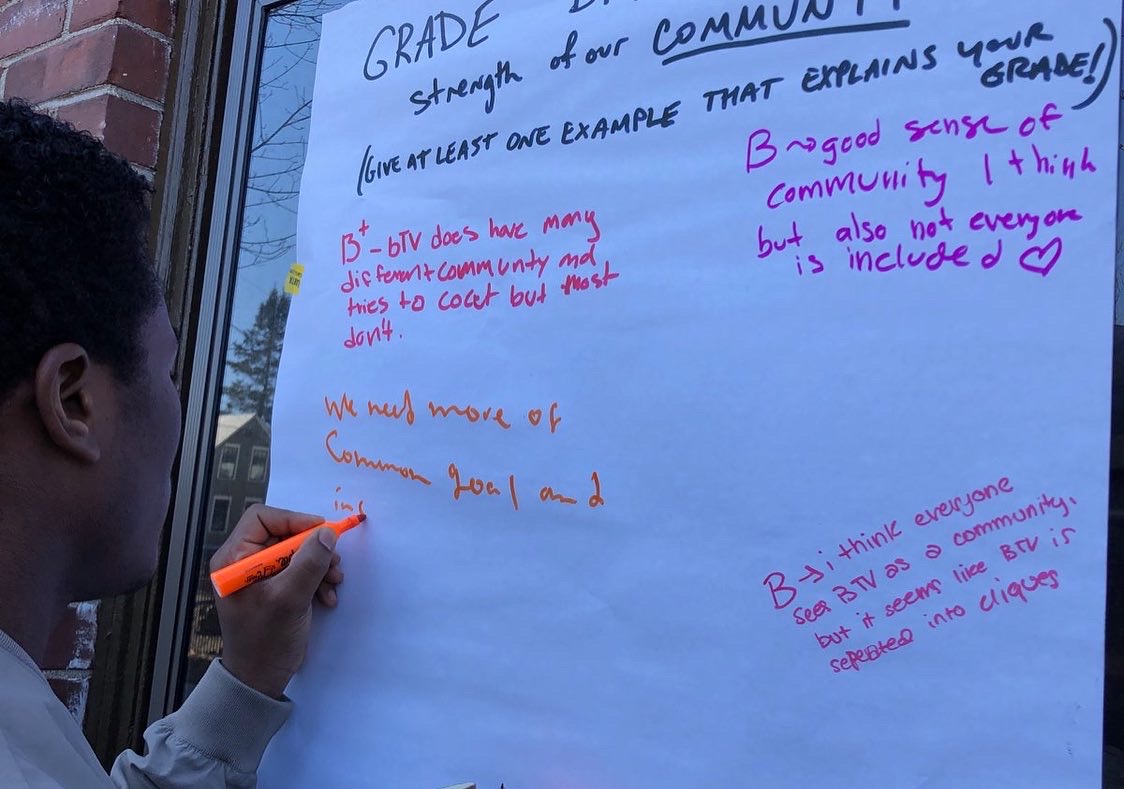 GRADE
strength of our COMMUNIT
(GIVE AT LEAST ONE EXAMPLE THAT EXPLAINS YOUR
GRADE!)
B+ - bTV does have many
different community and
tries to but most
don't.
B → good sense of
community I think
but also not everyone
is included ♡
We need more of
Common goal and
inc
B → i think everyone
sees BTV as a community.
but it seems like BTV is
seperated into cliques